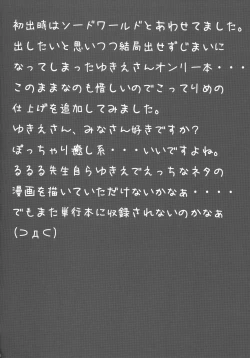 初出時はソードワールドとあわせてました。
出したいと思いつつ結局出せずじまいに
なってしまったゆきえさんオンリー本・・・
このままなのも惜しいのでこってりめの
仕上げを追加してみました。
ゆきえさん、みなさん好きですか?
ぽっちゃり癒し系・・・いいですよね。
るるる先生自らゆきえでえっちなネタの
漫画を描いていただけないかなぁ・・・・
でもまた単行本に収録されないのかなぁ
(⊃д⊂)